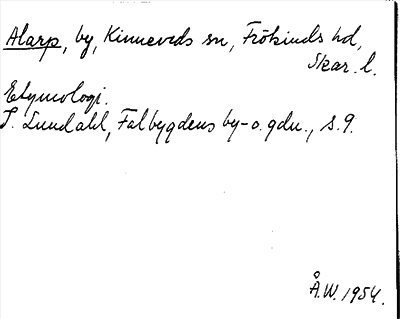 Alarp, by, Kinneveds sn, Frökinds hd,
Skar. l.
Etymologi.
I. Lundahl, Falbygdens by-o. gdn., s. 9.
Å.W. 1954.